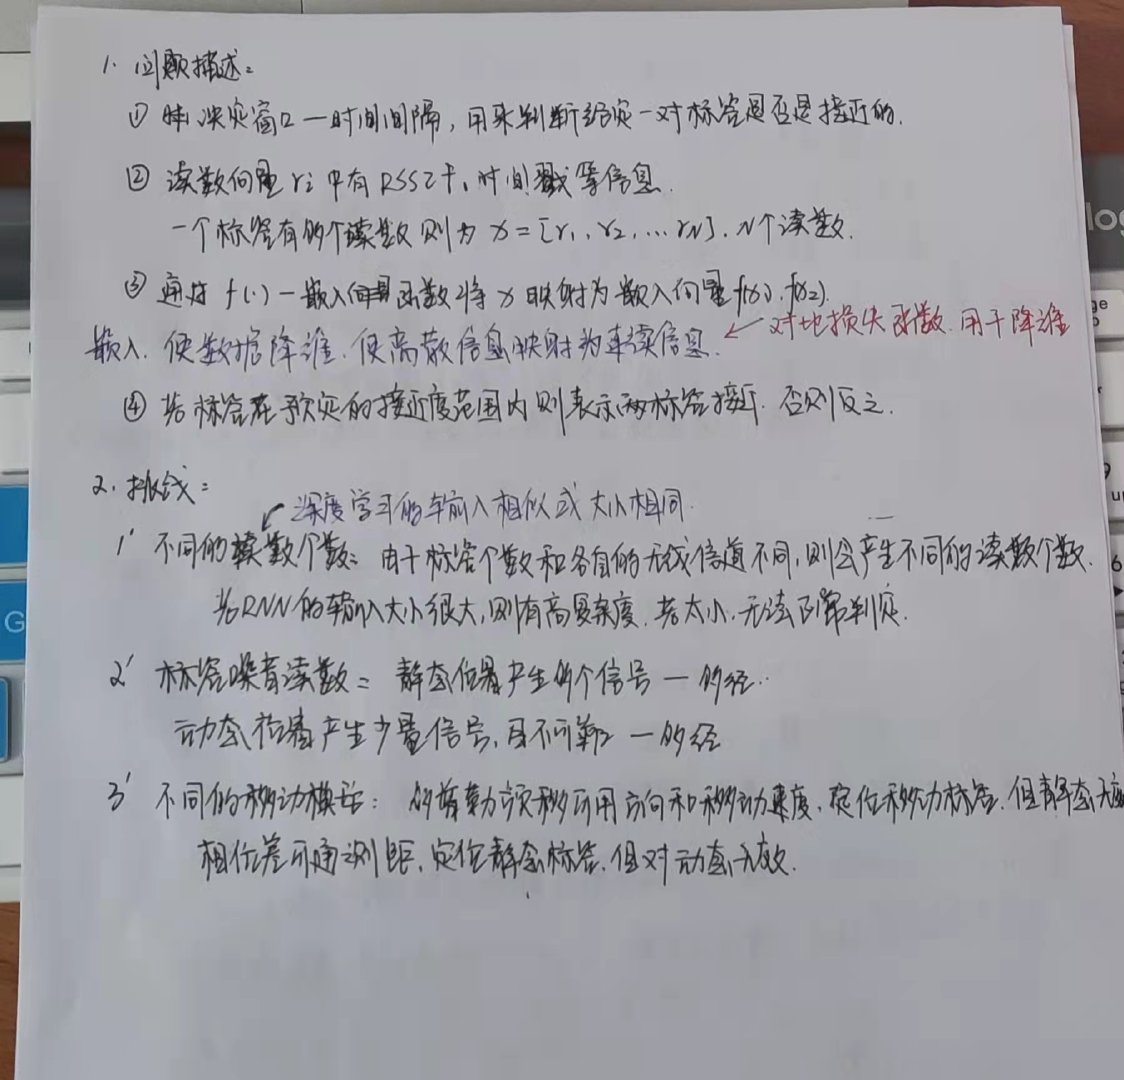 1. 问题描述:
① 决定窗口一时间间隔,用来判断给定一对标签是否是接近的.
② 读数向量 ri 中有 RSSI、时间戳等信息.
一个标签有多个读数则为 x = [r1, r2, ... rN]. N个读数.
③ 通过 f(·) 一嵌入向量函数将 x 映射为嵌入向量 f(x1). f(x2).
嵌入. 使数据降维. 使离散信息映射为连续信息. ← 对比损失函数. 用于降维
④ 若标签在预定的接近度范围内则表示两标签接近. 否则反之.
2. 挑战:
深度学习的输入相似或大小相同.
1' 不同的读数个数: 由于标签个数和各自的无线信道不同,则会产生不同的读数个数.
若RNN的输入大小很大,则有高复杂度. 若太小. 无法正常判定.
2' 标签噪音读数: 静态位置产生多个信号 — 多径..
动态位置产生少量信号,且不可靠 — 多径
3' 不同的移动模式: 多普勒频移可用方向和移动速度. 定位移动标签. 但静态无
相位差可通测距. 定位静态标签. 但对动态无效.
log
G
6